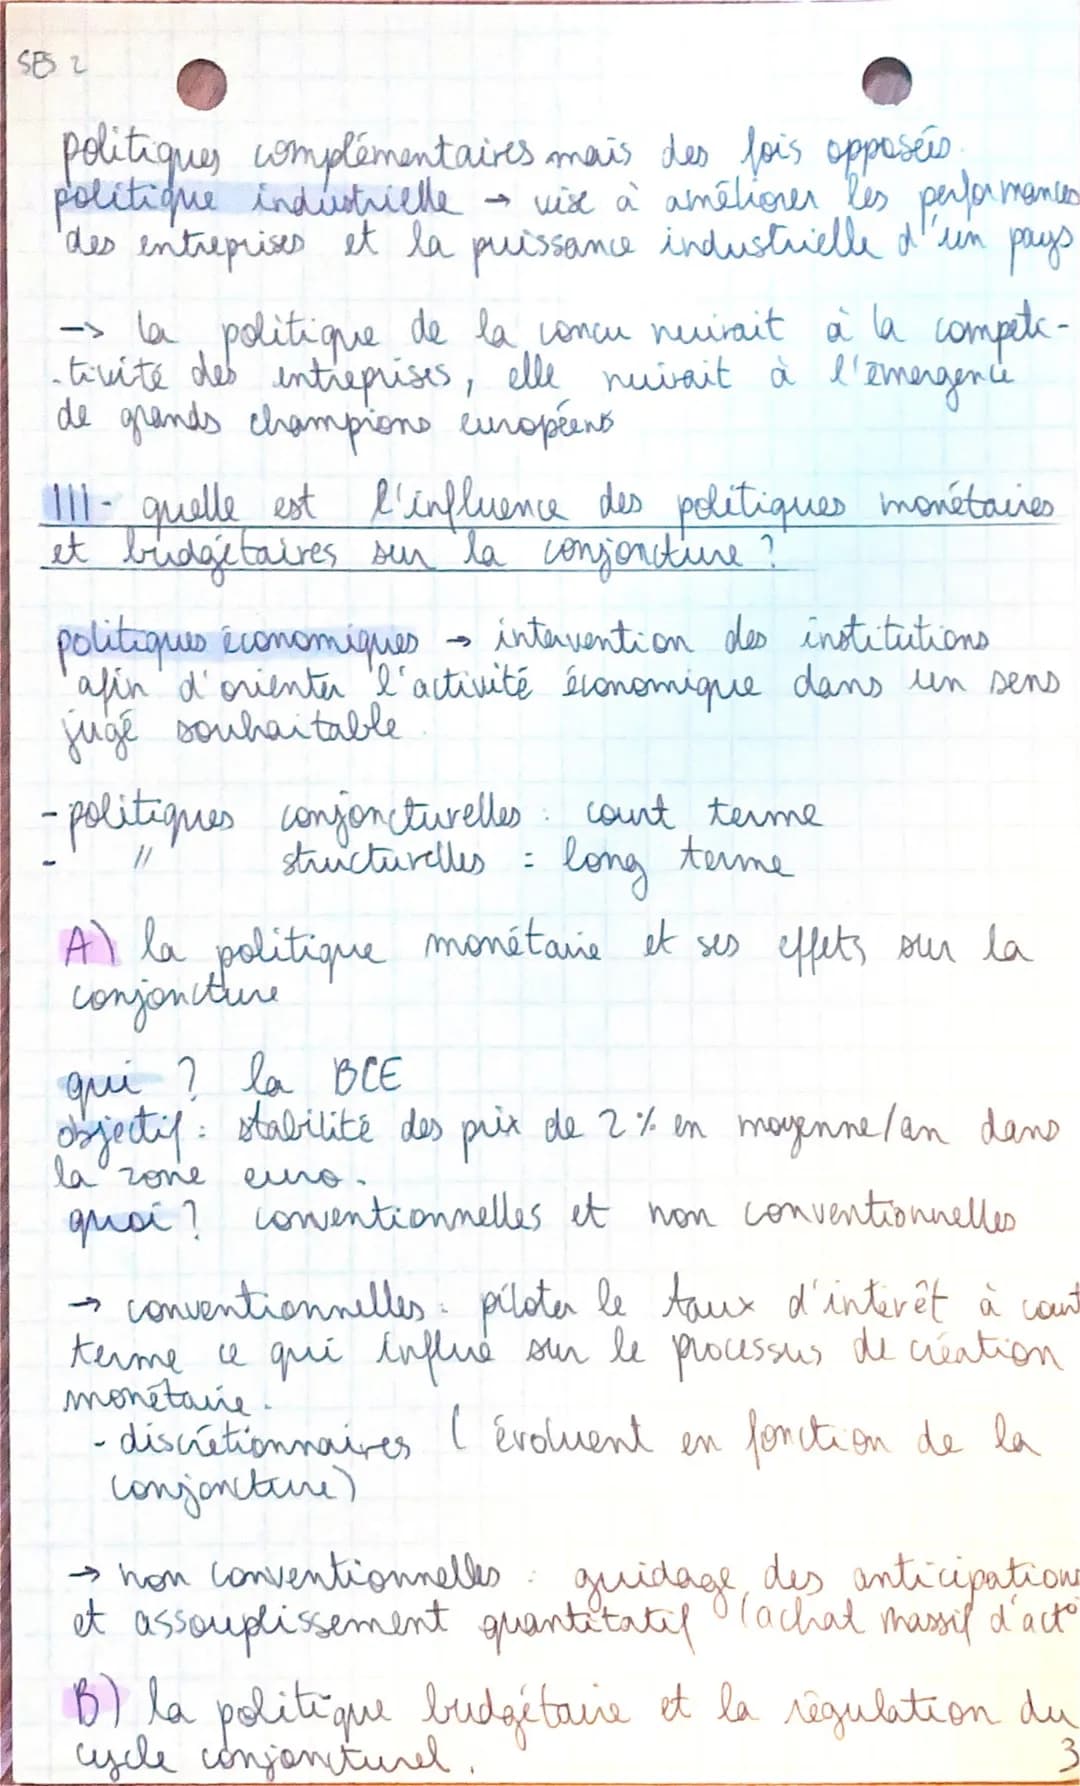 SES 2
politiques complémentaires mais des fois opposés.
politique industrielle → vise à améliorer les performances
des entreprises et la puissance industrielle d'un pays
--> la politique de la concu nuirait à la compéti-
-tivité des entreprises, elle nuirait à l'émergence
de grands champions européens
III- quelle est l'influence des politiques monétaires
et budgétaires sur la conjoncture ?
politiques économiques → intervention des institutions
afin d'orienter l'activité économique dans un sens
jugé souhaitable.
- politiques conjoncturelles : court terme
- // structurelles = long terme
A) la politique monétaire et ses effets sur la
conjoncture
qui ? la BCE
objectif : stabilité des prix de 2% en moyenne/an dans
la zone euro.
quoi ? conventionnelles et non conventionnelles
→ conventionnelles : piloter le taux d'intérêt à court
terme ce qui influe sur le processus de création
monétaire.
- discrétionnaires ( évoluent en fonction de la
conjoncture)
→ non conventionnelles : guidage des anticipations
et assouplissement quantitatif (achat massif d'act°
B) la politique budgétaire et la régulation du
cycle conjoncturel.
3